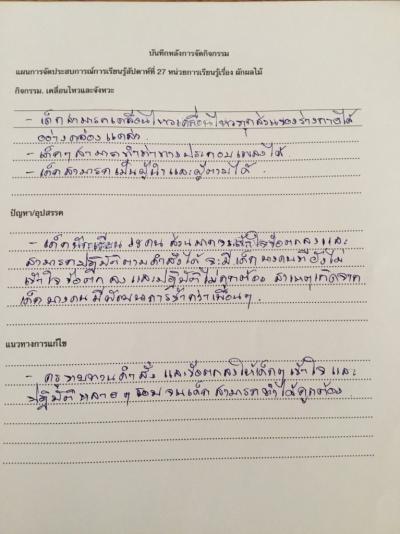 บันทึกหลังการจัดกิจกรรม
แผนการจัดประสบการณ์การเรียนรู้สัปดาห์ที่ 27 หน่วยการเรียนรู้เรื่อง ผักผลไม้
กิจกรรม. เคลื่อนไหวและจังหวะ
- เด็กสามารถเคลื่อนไหวเคลื่อนไหวทุกส่วนของร่างกายได้
อย่างคล่องแคล่ว
- เด็กๆ สามารถทำท่าทางประกอบเพลงได้.
- เด็กสามารถเป็นผู้นำและผู้ตามได้.
ปัญหา/อุปสรรค
- เด็กนักเรียน คน ส่วนมากจะเข้าใจข้อตกลงและ
สามารถปฏิบัติตามคำสั่งได้ จะมีเด็กบางคนที่ยังไม่
เข้าใจ ข้อตกลง และปฏิบัติไม่ถูกต้อง สาเหตุเกิดจาก
เด็กบางคนมีพัฒนาการช้ากว่าเพื่อนๆ.
แนวทางการแก้ไข
- ครูทบทวนคำสั่ง และข้อตกลงให้เด็กๆ เข้าใจ และ
ปฏิบัติหลายๆ รอบ จนเด็กสามารถทำได้ถูกต้อง